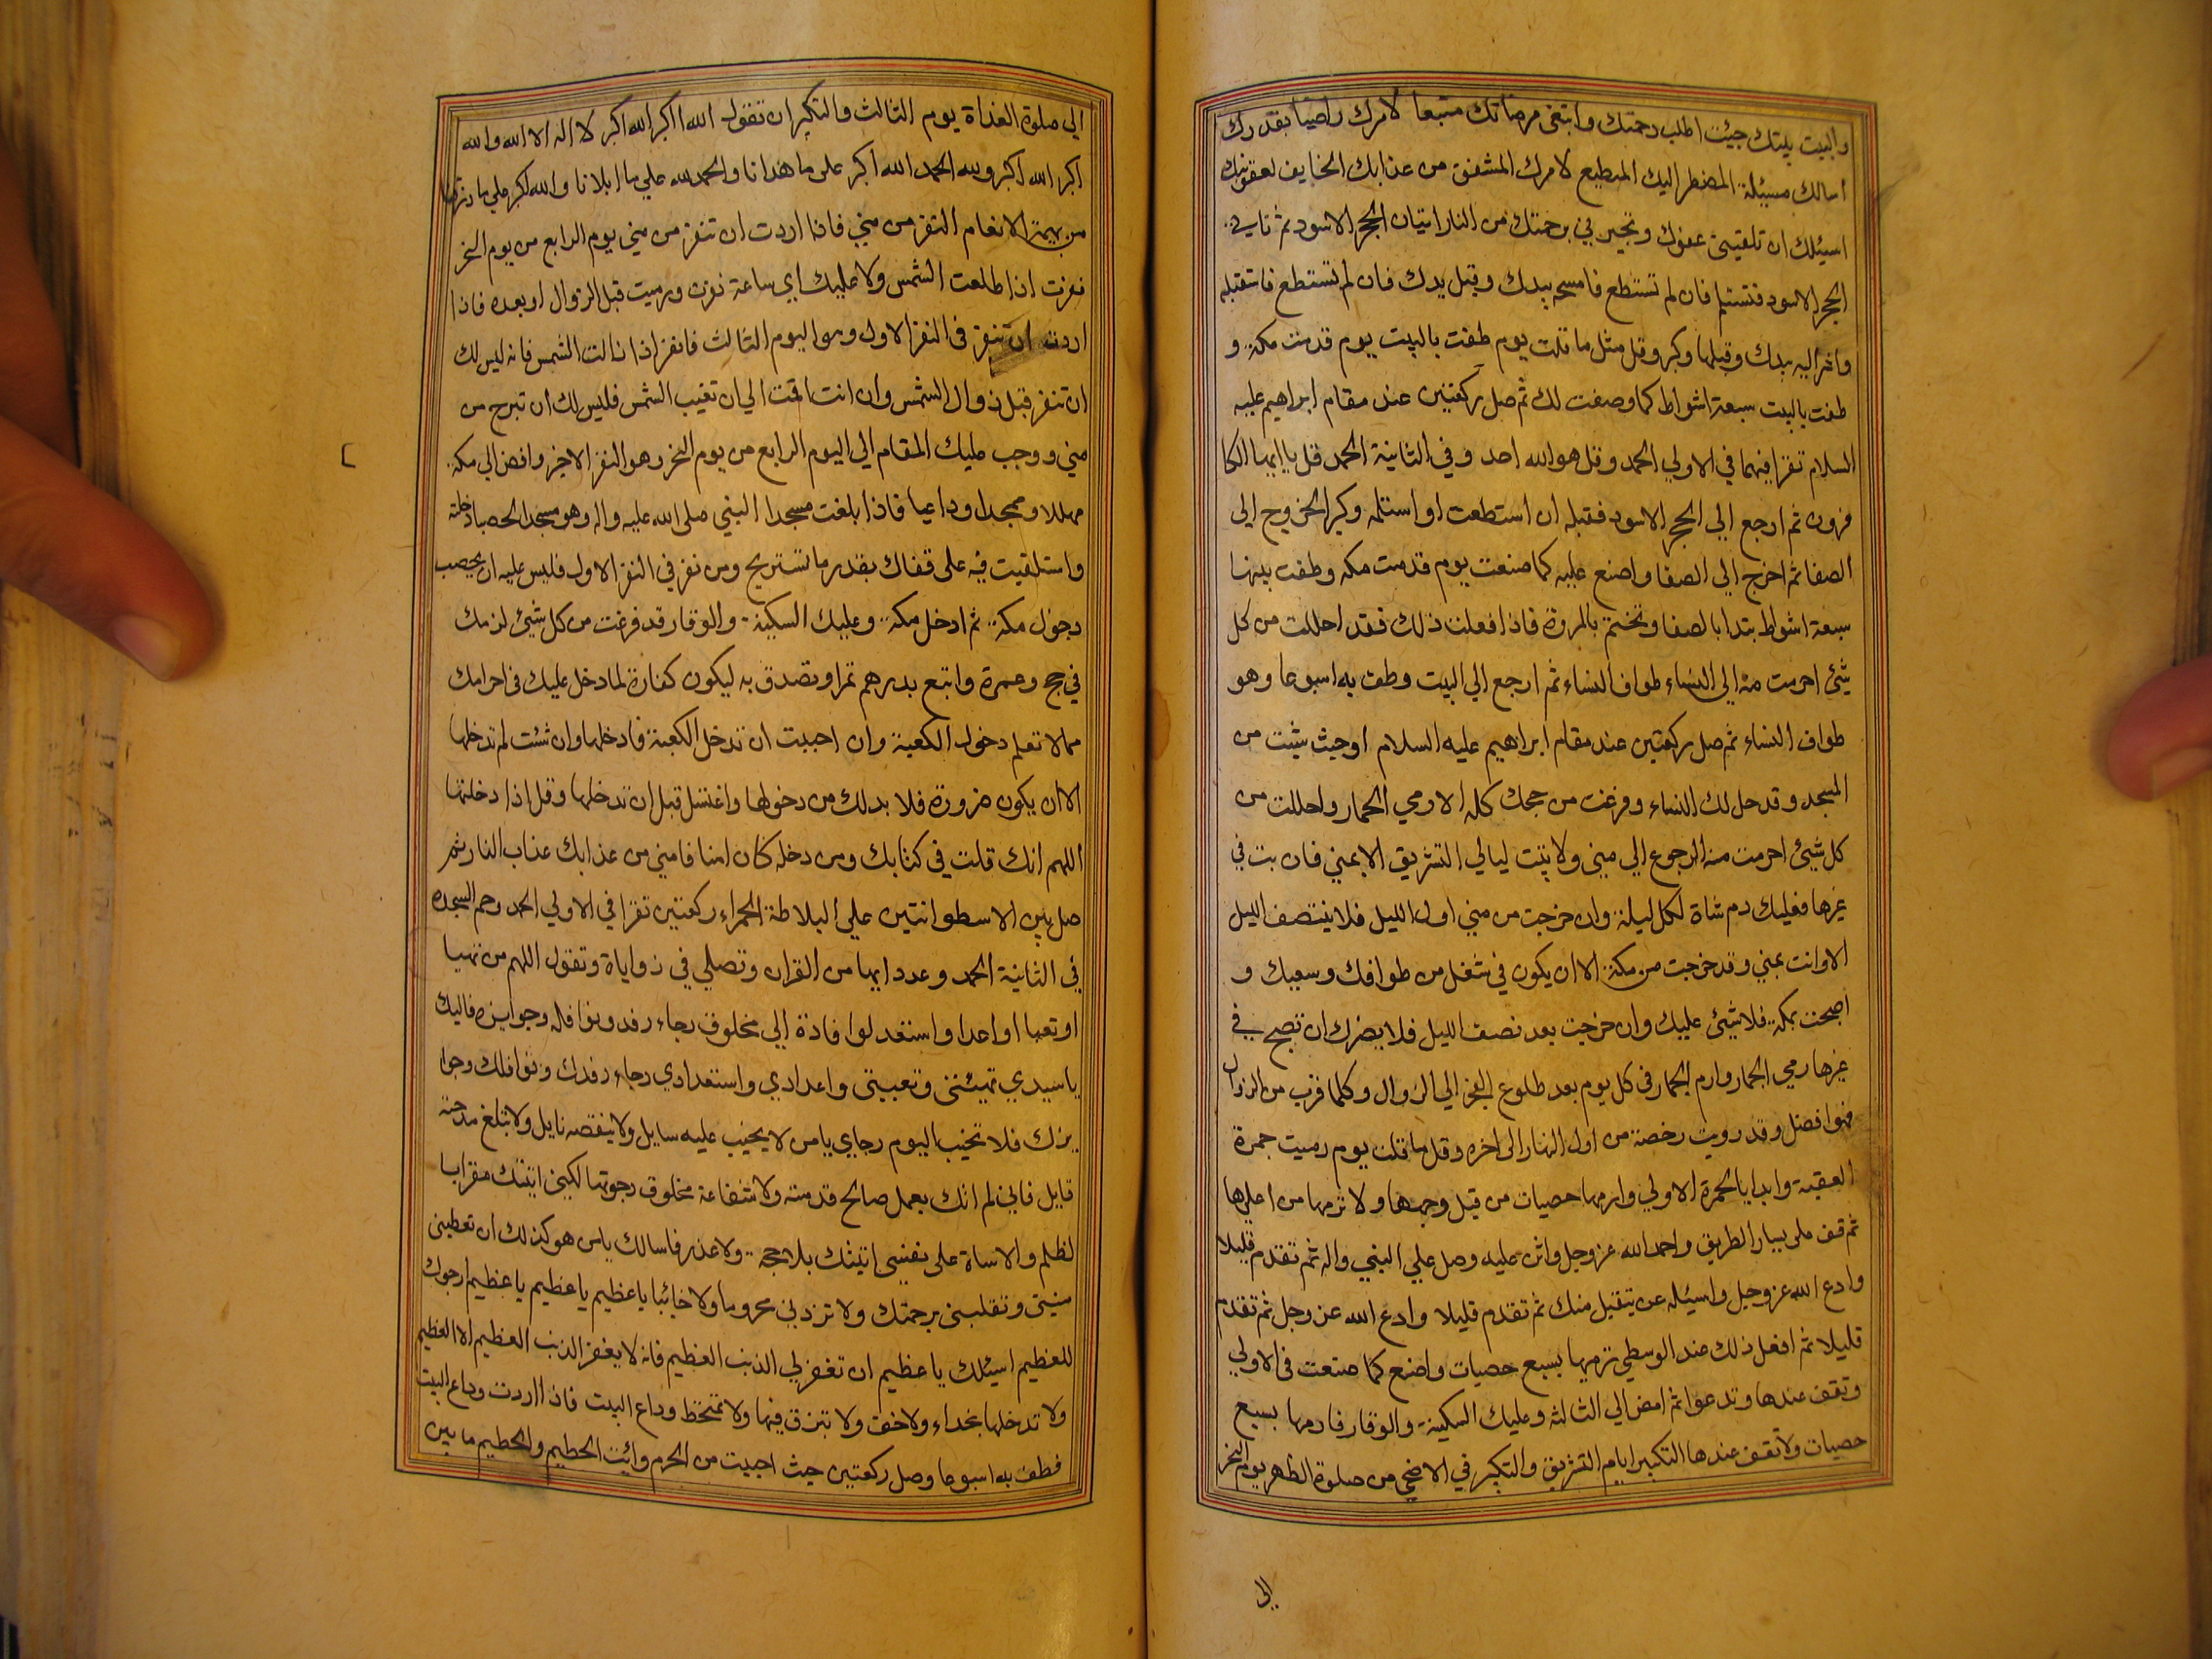 والبيت بيتك جيئت اطلب رحمتك وابتغى مرضاتك متبعا لامرك راضيا بقدرك
اسالك مسيئلة المضطر اليك المطيع لامرك المشفق من عذابك الخايف لعقوبتك
اسيئلك ان تلقيني عفوك وتجيرني برحمتك من النار اتيان الحجر الاسود ثم تاتي
الحجر الاسود فتستلم فان لم تستطع فامسحه بيدك وقبل يدك فان لم تستطع فاستقبله
واشر اليه بيدك وقبلها وكبر وقل مثل ما قلت يوم طفت بالبيت يوم قدمت مكة و
طفت بالبيت سبعة اشواط كما وصفت لك ثم صل ركعتين عند مقام ابراهيم عليه
السلام تقرا فيهما في الاولي الحمد وقل هو الله احد وفي الثانية الحمد قل يا ايها الكا
فرون ثم ارجع الي الحجر الاسود فقبله ان استطعت او استلمه وكبر الخروج الي
الصفا ثم اخرج الي الصفا واصنع عليه كما صنعت يوم قدمت مكه وطفت بينهما
سبعة اشواط بتدا بالصفا وتختم بالمروة فاذا فعلت ذلك فقد احللت من كل
شيئ احرمت منه الي النساء طواف النساء ثم ارجع الي البيت وطف به اسبوعا وهو
طواف النساء ثم صل ركعتين عند مقام ابراهيم عليه السلام او حيث شيئت من
المسجد وقد حل لك النساء وفرغت من حجك كله الا رمي الجمار واحللت من
كل شيئ احرمت منه الرجوع الي مني ولا تبت ليالي التشريق الا بمني فان بت في
غيرها فعليك دم شاة لكل ليلة وان خرجت من مني اول الليل فلا ينتصف الليل
الا وانت بمني وقد خرجت من مكة الا ان يكون في شغل من طوافك وسعيك و
اصبحت بمكة فلا شيئ عليك وان خرجت بعد نصف الليل فلا يضرك ان تصبح في
غيرها رمي الجمار وارم الجمار في كل يوم بعد طلوع الفجر الي الزوال وكلما قرب من الزوال
فهو افضل وقد رويت رخصة من اول النهار الى اخره وقل ما قلت يوم رميت جمرة
العقبة وابدا بالجمرة الاولي وارمها حصيات من قبل وجهها ولا ترمها من اعليها
ثم قف على يسار الطريق واحمد الله عز وجل واثن عليه وصل علي النبي واله ثم تقدم قليلا
وادع الله عز وجل واسيئله عن يتقبل منك ثم تقدم قليلا وادع الله عز وجل ثم تقدم
قليلا ثم افعل ذلك عند الوسطي ترميها بسبع حصيات واصنع كما صنعت في الاولي
وتقف عندها وتدعوا ثم امض الي الثالثه وعليك السكينة والوقار فارمها بسبع
حصيات ولا تقف عندها التكبير ايام التشريق والتكبر في الاضحي من صلوة الظهر يوم النحر
الي
الي صلوة الغداة يوم الثالث والتكبير ان تقول الله اكبر الله اكبر لا اله الا الله والله
اكبر الله اكبر ولله الحمد الله اكبر على ما هدانا والحمد لله علي ما ابلانا والله اكبر علي ما رزقنا
من بهيمة الانعام النفر من مني فاذا اردت ان تنفر من مني يوم الرابع من يوم النحر
نفرت اذا طلعت الشمس ولا عليك اي ساعة نفرت ورميت قبل الزوال او بعده فاذا
اردت ان تنفر في النفر الاول وهو اليوم الثالث فانفر اذا زالت الشمس فانه ليس لك
ان تنفر قبل زوال الشمس وان انت اقمت الي ان تغيب الشمس فليس لك ان تبرح من
مني ووجب عليك المقام الي اليوم الرابع من يوم النحر وهو النفر الاخير وافض الي مكة
مهللا وممجدا وداعيا فاذا بلغت مسجدا النبي صلى الله عليه واله وهو مسجد الحصبا دخلته
واستلقيت فيه على قفاك بقدر ما تستريح ومن نفر في النفر الاول فليس عليه ان يحصب
دخول مكة ثم ادخل مكة وعليك السكينة والوقار قد فرغت من كل شيئ لزمك
في حج وعمرة وابتع بدرهم تمرا وتصدق به ليكون كفارة لما دخل عليك في احرامك
مما لا تعلم دخول الكعبة وان احببت ان تدخل الكعبة فادخلها وان شئت لم تدخلها
الا ان يكون ضرورة فلا بد لك من دخولها واغتسل قبل ان تدخلها وقل اذا دخلتها
اللهم انك قلت في كتابك ومن دخله كان امنا فامني من عذابك عذاب النار ثم
صل بين الاسطوانتين علي البلاطة الحمراء ركعتين تقرا في الاولي الحمد وحم السجده
في الثانية الحمد وعدد ايها من القران وتصلي في زواياة وتقول اللهم من تهيا
او تعبا او اعدا واستعد لوفادة الي مخلوق رجاء رفد ونوافله وجوايزه فاليك
يا سيدي تهيئتي وتعبيتي واعدادي واستعدادي رجاء رفدك ونوافلك وجوا
يزك فلا تخيب اليوم رجاي يا من لا يخيب عليه سايل ولا ينقصه نايل ولا تبلغ مدحته
قايل فاني لم اتك بعمل صالح قدمته ولا شفاعة مخلوق رجوتها لكني اتيتك مقرا با
لظلم والاساة على نفسي اتيتك بلا حجة ولا عذر فاسالك يا من هو كذلك ان تعطيني
منيتي وتقلبني برحمتك ولا تردني محروما ولا خائبا يا عظيم يا عظيم يا عظيم ارجوك
للعظيم اسيئلك يا عظيم ان تغفر لي الذنب العظيم فانه لا يغفر الذنب العظيم الا العظيم
ولا تدخلها بحذاء ولا خف ولا تبزق فيها ولا تمتخط وداع البيت فاذا اردت وداع البيت
فطف به اسبوعا وصل ركعتين حيث احببت من الحرم وائت الحطيم والحطيم ما بين